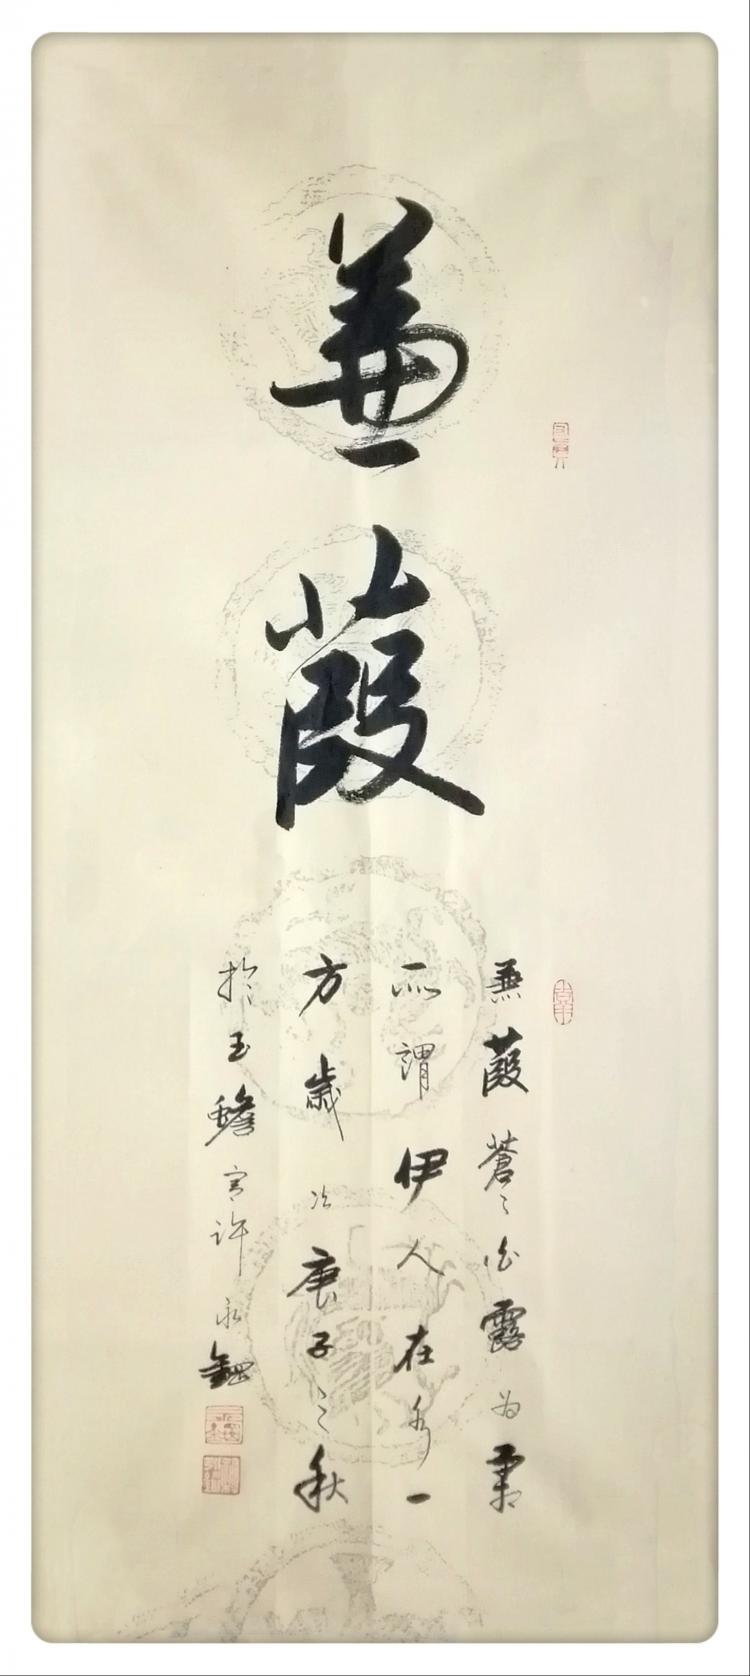 蒹葭
蒹葭蒼々白露為霜
所謂伊人在水一
方歲次庚子之秋
於玉蟾宮許永